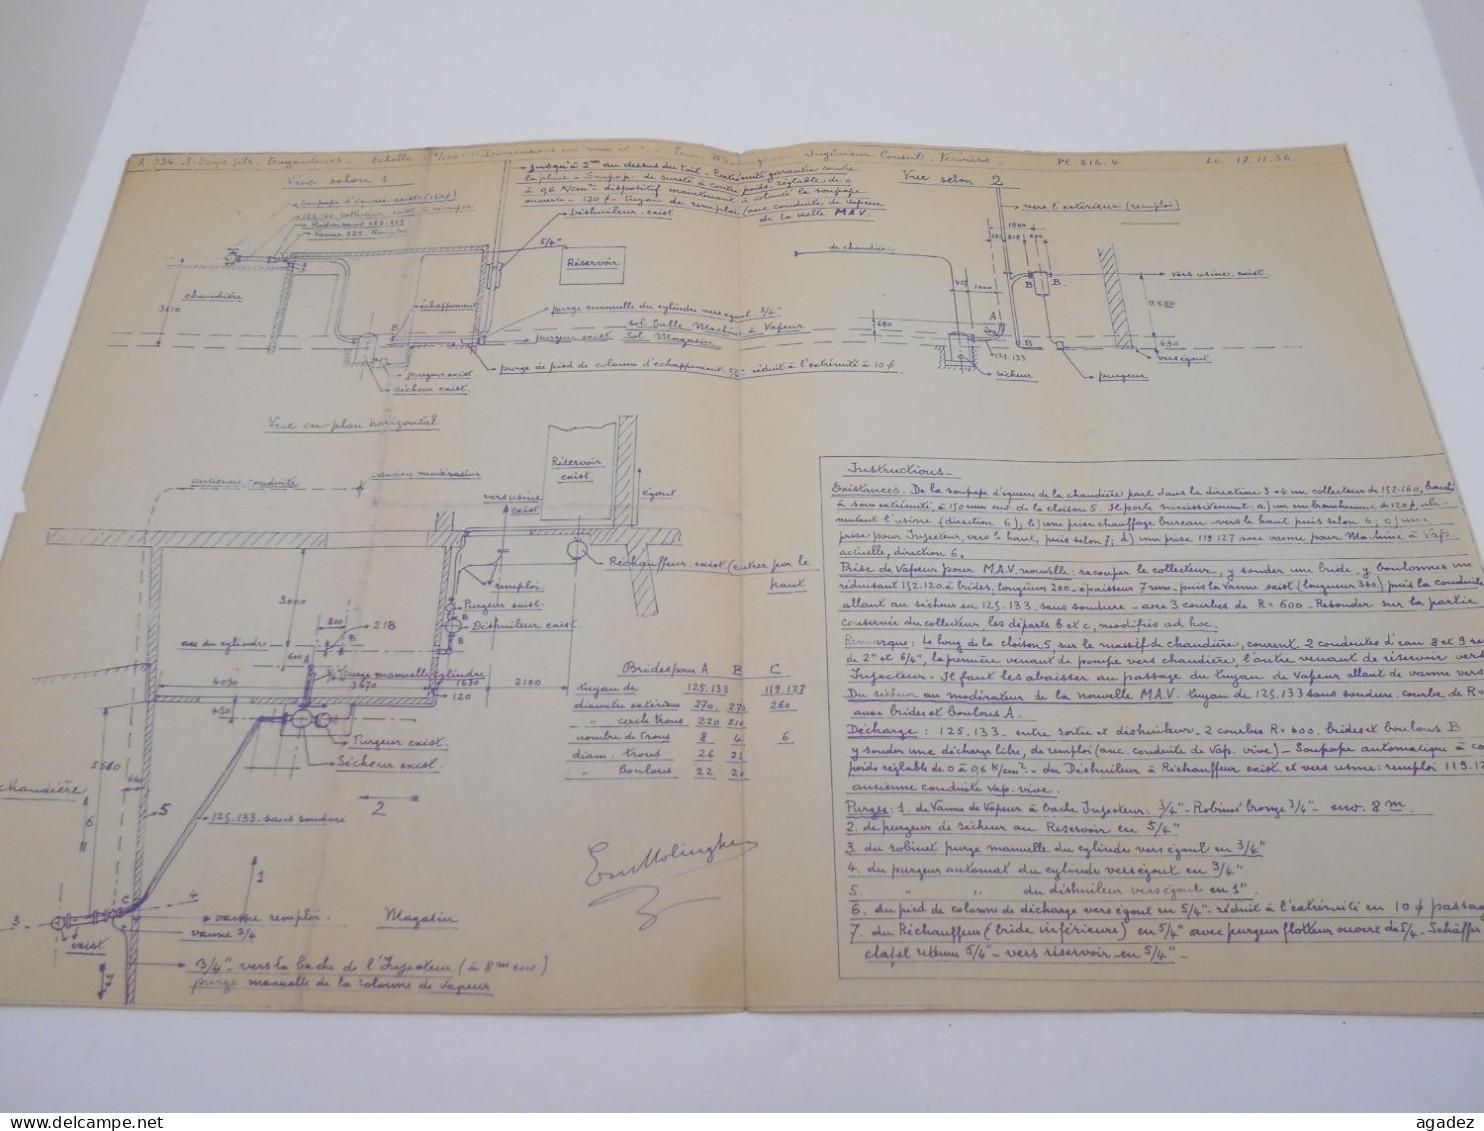 Echelle 1/100. Dimensions en mm et ". Ingénieur-Conseil. Verviers. PE.816.4. Le 17.11.36
Vue selon 1
Soupape d'équerre exist (160ϕ)
152.160. collecteur exist à recouper
Vanne 125. Remploi
chaudière
3610
Jusqu'à 2m au dessus du toit - Extrémité garantie contre
la pluie - Soupap. de sureté à contre poids réglable de 0
à 0,6 K/cm² - dispositif maintenant à volonté la soupape
ouverte - 120 ϕ - tuyau de remploi (anc conduite de vapeur
de la vieille M.A.V.
Déshuileur exist.
5/4"
Réservoir
échappement
B
purge manuelle du cylindre vers égout 3/4"
sol Salle Machine à Vapeur
purgeur exist Sol Magasin
purge de pied de colonne d'échappement 5/4" réduit à l'extrémité à 10 ϕ
purgeur exist
sécheur exist
Vue selon 2
vers l'extérieur (remploi)
de chaudière
425 1200
A
B B
vers usine exist.
2580
680
490
125.133
B
vers égout
sécheur
purgeur
Vue en plan horizontal
ancienne conduite
ancien modérateur
vers usine
exist
Réservoir
exist.
égout
Réchauffeur exist (entrer par le
haut
remploi
Purgeur exist.
Déshuileur exist.
3000
800
218
axe du cylindre
600
3/4" purge manuelle cylindre
4090
3670
1630
120
2100
450
Purgeur exist.
Sécheur exist.
2
5580
chaudière
5
125.133 sans soudure
1
4
C
3
exist
vanne remploi
vanne 3/4
Magasin
3/4" vers la bache de l'Injecteur (à 8m env)
purge manuelle de la colonne de vapeur
Brides pour A B C
tuyau de 125.133 119.127
diamètre extérieur 270. 270 260
" cercle trous 220 210
nombre de trous 8 4 6
diam. trous 26 22
" boulons 22 20
Instructions-
Existances. De la soupape d'équerre de la chaudière part dans la direction 3-4 un collecteur de 152-160, bouché
à son extrémité, à 150 mm env de la cloison 5. Il porte successivement: a) un embranchement de 120ϕ, ali-
mentant l'usine (direction 6); b) une prise chauffage bureau vers le haut puis selon 6; c) une
prise pour Injecteur, vers le haut, puis selon 7; d) une prise 119.127 avec vanne pour Machine à Vap.
actuelle, direction 6.
Prise de Vapeur pour M.A.V. nouvelle: recouper le collecteur, y souder une bride, y boulonner un
réduisant 152.120. à brides, longueur 200 - épaisseur 7 mm, puis la Vanne exist (longueur 360.) puis la conduite
allant au sécheur en 125.133. sans soudure - avec 3 courbes de R = 600. Resouder sur la partie
conservée du collecteur, les départs b et c, modifiés ad hoc.
Remarque: Le long de la cloison 5, sur le massif de chaudière, courent 2 conduites d'eau 8 et 9
de 2" et 6/4", la première venant de pompe vers chaudière, l'autre venant de réservoir vers
Injecteur. Il faut les abaisser au passage du tuyau de Vapeur allant de vanne vers
Du sécheur au modérateur de la nouvelle M.A.V. tuyau de 125.133 sans soudure. courbe de R=
avec brides et boulons A.
Décharge: 125.133. entre sortie et déshuileur. 2 courbes R=600. brides et boulons B
y souder une décharge libre, de remploi (anc. conduite de Vap. vive) - Soupape automatique à co
poids réglable de 0 à 0,6 K/cm² - du Déshuileur à Réchauffeur exist. et vers usine: remploi 119.12
ancienne conduite vap. vive.
Purges: 1. de Vanne de Vapeur à bache Injecteur: 3/4" - Robinet bronze 3/4" - env. 8 m.
2. de purgeur de sécheur au Réservoir en 5/4"
3. du robinet purge manuelle du cylindre vers égout en 3/4"
4. du purgeur automat du cylindre vers égout en 3/4"
5. " " du déshuileur vers égout en 1".
6. du pied de colonne de décharge vers égout en 5/4" - réduit à l'extrémité en 10 ϕ passag
7. du Réchauffeur (bride inférieure) en 5/4" avec purgeur flotteur ouvert de 5/4 - Schäffer
clapet retenu 5/4" - vers réservoir en 5/4" -
www.delcampe.net
agadez